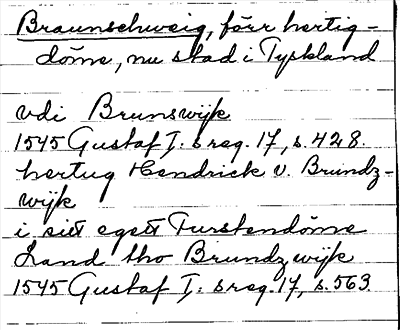 Braunschweig, förr hertig-
döme, nu stad i Tyskland
vdi Brunswijk
1545 Gustaf I: s reg. 17, s. 428.
hertug Hendrick v. Brundz-
wijk
i sitt egett Furstendöme
Land tho Brundzwijk
1545 Gustaf I: s reg. 17, s. 563.